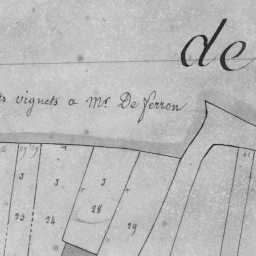 de
vignets a Mr. De ferron
3 3 3 3
23 24 28 29